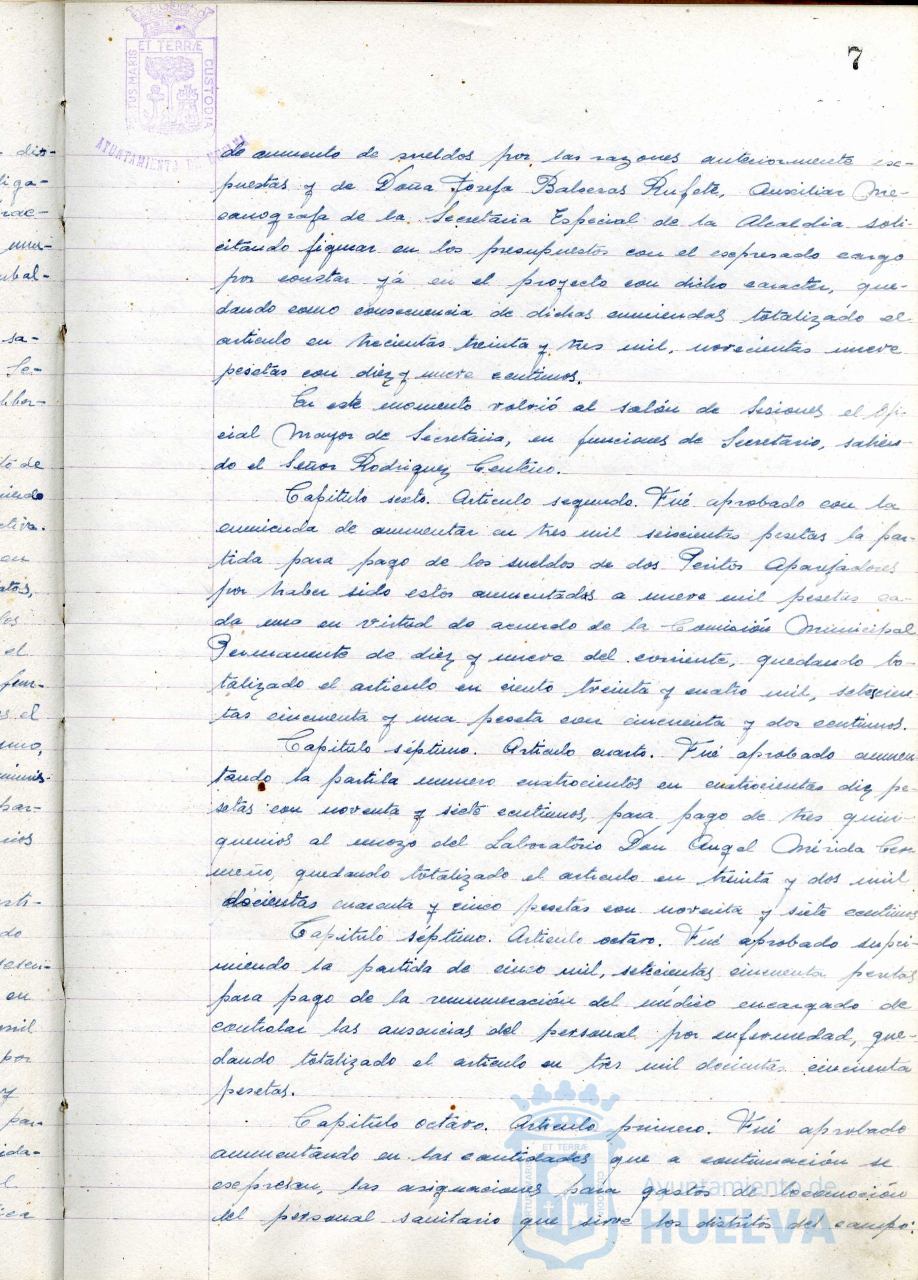 7
ET TERRÆ
CUSTODIA
AYUNTAMIENTO DE HUELVA
de aumento de sueldos por las razones anteriormente ex-
puestas y de Doña Josefa Balseras Rufete, Auxiliar Me-
canografa de la Secretaria Especial de la Alcaldia soli-
citando figurar en los presupuestos con el expresado cargo
por constar yá en el proyecto con dicho caracter, que-
dando como consecuencia de dichas enmiendas totalizado el
articulo en trecientas treinta y tres mil, novecientas nueve
pesetas con diez y nueve centimos.
En este momento volvió al salón de Sesiones el Ofi-
cial Mayor de Secretaria, en funciones de Secretario, salien-
do el Señor Rodriguez Centeno.
Capitulo sexto. Articulo segundo. Fué aprobado con la
enmienda de aumentar en tres mil seiscientas pesetas la par-
tida para pago de los sueldos de dos Peritos Aparejadores
por haber sido estos aumentados a nueve mil pesetas ca-
da uno en virtud de acuerdo de la Comisión Municipal
Permanente de diez y nueve del corriente, quedando to-
talizado el articulo en ciento treinta y cuatro mil, setecien
tas cincuenta y una peseta con cincuenta y dos centimos.
Capitulo séptimo. Articulo cuarto. Fué aprobado aumen
tando la partila numero cuatrocientos en cuatrocientas diez pe-
setas con noventa y siete centimos, para pago de tres quin-
quenios al mozo del Laboratorio Don Angel Mérida Cer
meño, quedando totalizado el articulo en treinta y dos mil
docientas cuarenta y cinco pesetas con noventa y siete centimos
Capitulo séptimo. Articulo octavo. Fué aprobado supri-
miendo la partida de cinco mil, setecientas cincuenta pesetas
para pago de la remuneración del médico encargado de
controlar las ausencias del personal por enfermedad, que-
dando totalizado el articulo en tres mil docientas cincuenta
pesetas.
Capitulo octavo. Articulo primero. Fué aprobado
aumentando en las cantidades que a continuación se
expresan, las asignaciones para gastos de locomoción
del personal sanitario que sirve los distritos del campo:
Ayuntamiento de
HUELVA